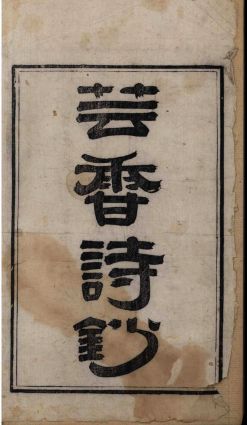 芸香詩鈔